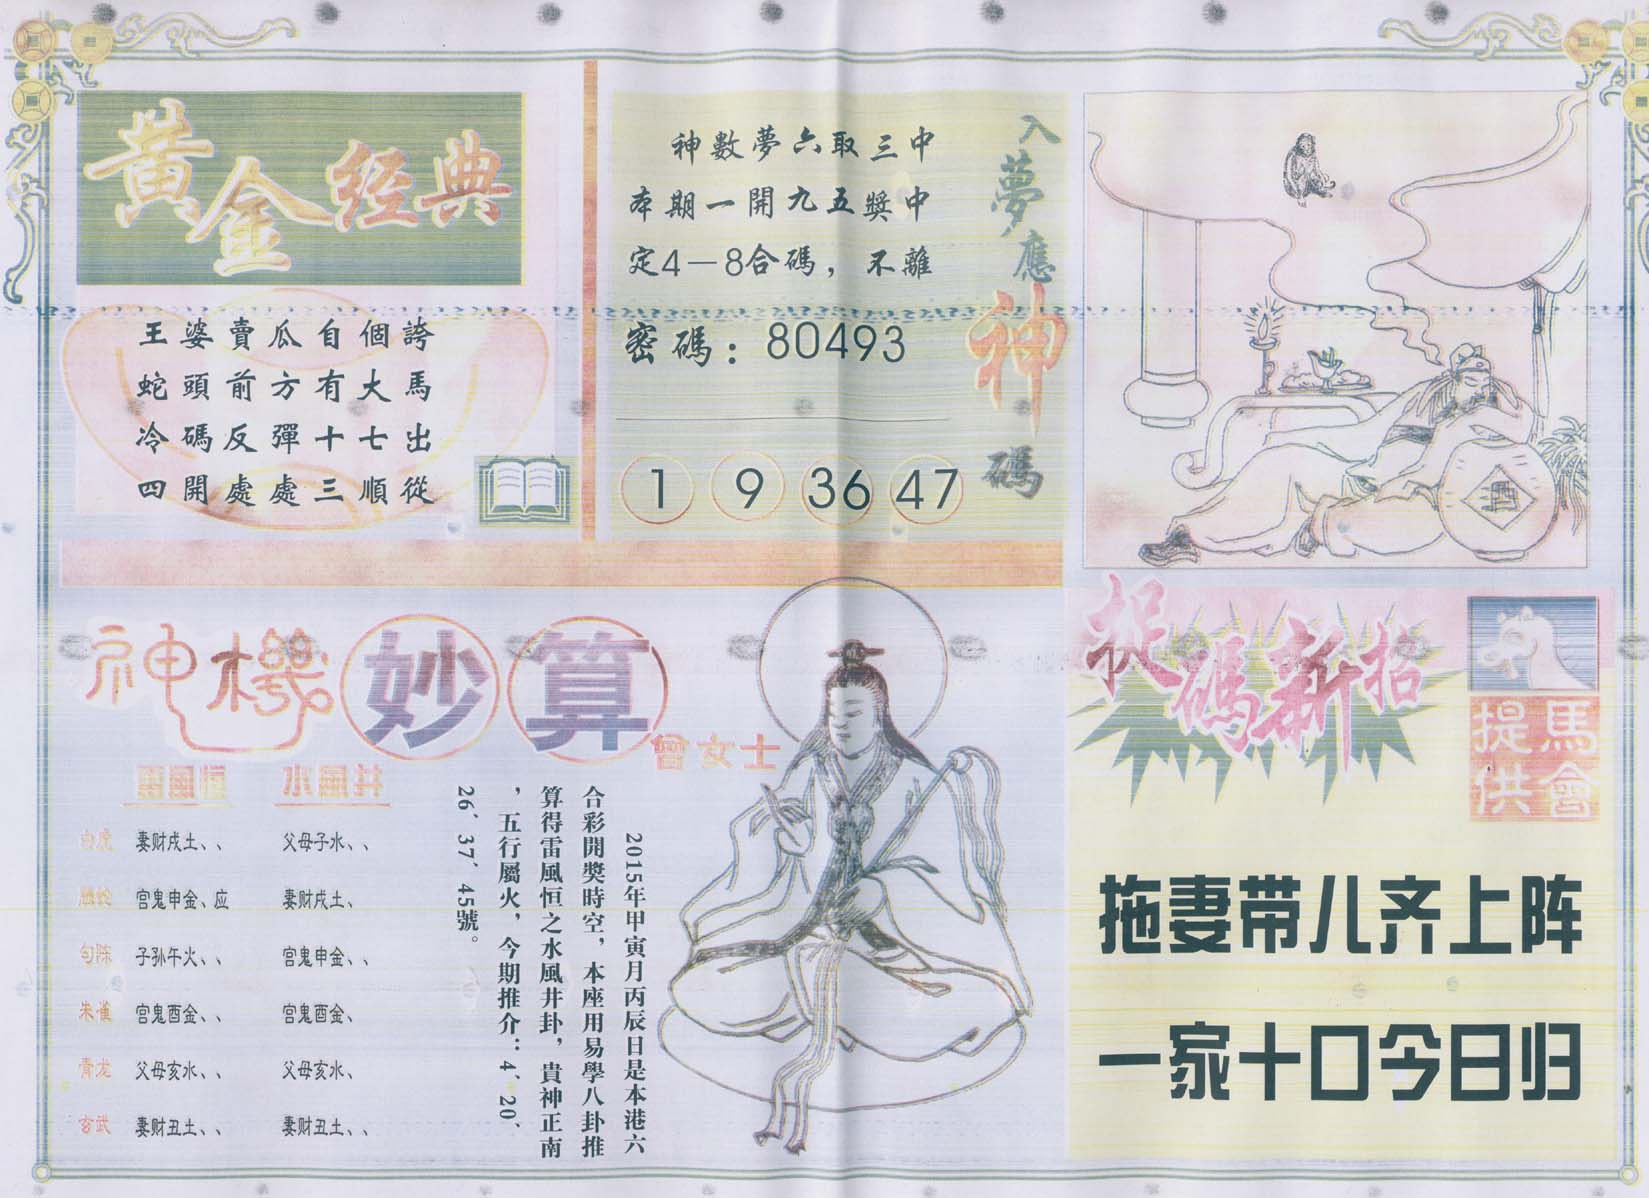 黃金经典
王婆賣瓜自個誇
蛇頭前方有大馬
冷碼反彈十七出
四開處處三順從
入夢應神碼
神數夢六取三中
本期一開九五獎中
定4—8合碼，不離
密碼：80493
1 9 36 47
神機妙算
曾女士
雷風恒 水風井
白虎 妻财戌土、、 父母子水、、
腾蛇 宫鬼申金、应 妻财戌土、
勾陈 子孙午火、、 宫鬼申金、、
朱雀 宫鬼酉金、、 宫鬼酉金、
青龙 父母亥水、、 父母亥水、
玄武 妻财丑土、、 妻财丑土、、
2015年甲寅月丙辰日是本港六
合彩開獎時空，本座用易學八卦推
算得雷風恒之水風井卦，貴神正南
，五行屬火，今期推介：4、20、
26、37、45號。
捉碼新招
馬會
提供
拖妻带儿齐上阵
一家十口今日归